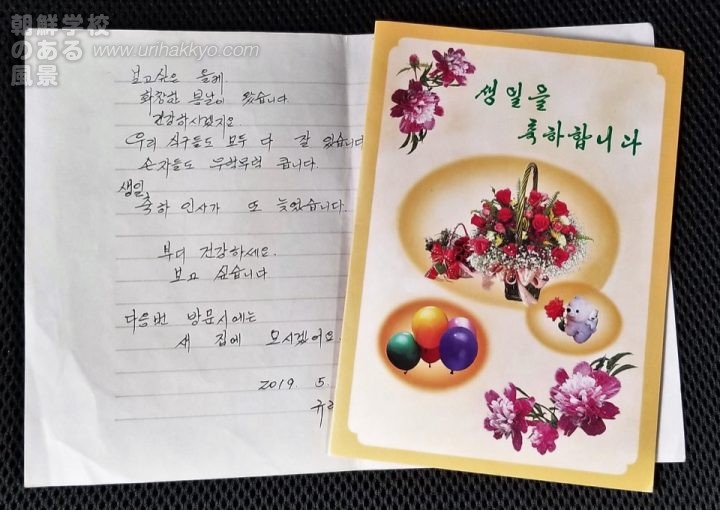 朝鮮学校
のある
風景
www.urihakkyo.com
보고싶은 올케.
화창한 봄날이 왔습니다.
건강하시겠지요.
우리 식구들도 모두 다 잘 있습니다
손자들도 무럭무럭 큽니다.
생일,
축하 인사가 또 늦었습니다.
부디 건강하세요.
보고 싶습니다
다음번 방문시에는
새 집에 모시겠어요.
2019. 5.
생일을
축하합니다